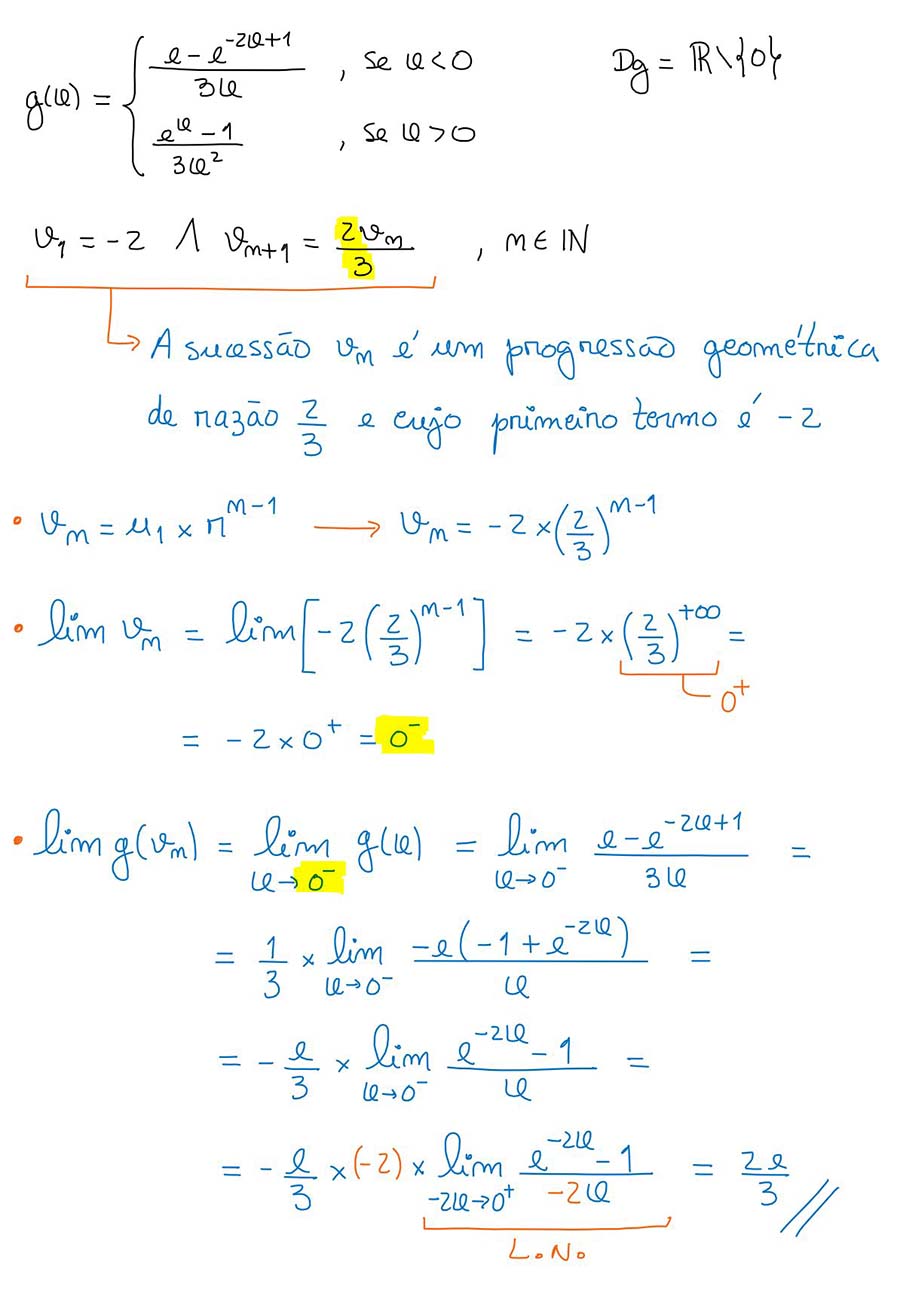 g(x) = { (e - e^(-2x+1))/(3x) , se x < 0      Dg = ℝ\{0}
(e^x - 1)/(3x²) , se x > 0
v₁ = -2 ∧ vₙ₊₁ = 2vₙ/3 , n ∈ ℕ
A sucessão vₙ é um progressão geométrica
de razão 2/3 e cujo primeiro termo é -2
• vₙ = u₁ × r^(n-1) → vₙ = -2 × (2/3)^(n-1)
• lim vₙ = lim [-2(2/3)^(n-1)] = -2 × (2/3)^(+∞) =
0⁺
= -2 × 0⁺ = 0⁻
• lim g(vₙ) = lim_(x→0⁻) g(x) = lim_(x→0⁻) (e - e^(-2x+1))/(3x) =
= 1/3 × lim_(x→0⁻) (-e(-1 + e^(-2x)))/x =
= -e/3 × lim_(x→0⁻) (e^(-2x) - 1)/x =
= -e/3 × (-2) × lim_(-2x→0⁺) (e^(-2x) - 1)/(-2x) = 2e/3 //
L.N.